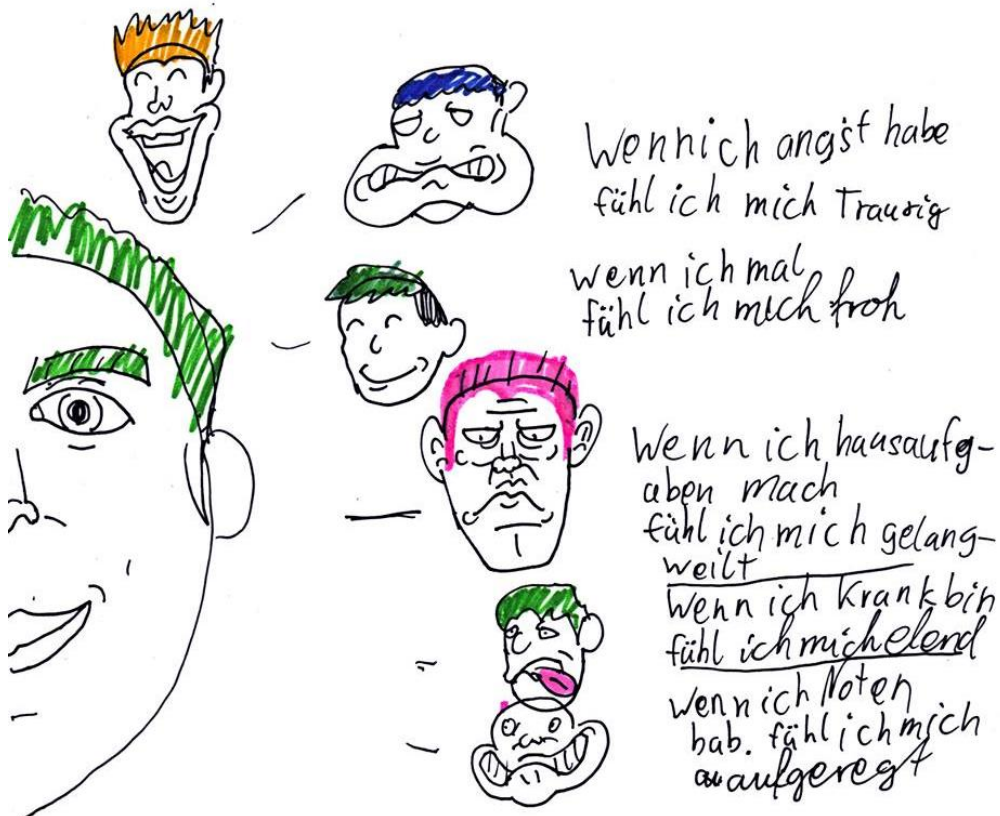 Wenn ich angst habe
fühl ich mich Traurig
wenn ich mal
fühl ich mich froh
Wenn ich hausaufg-
aben mach
fühl ich mich gelang-
weilt
Wenn ich Krank bin
fühl ich mich elend
wenn ich Noten
hab. fühl ich mich
aufgeregt